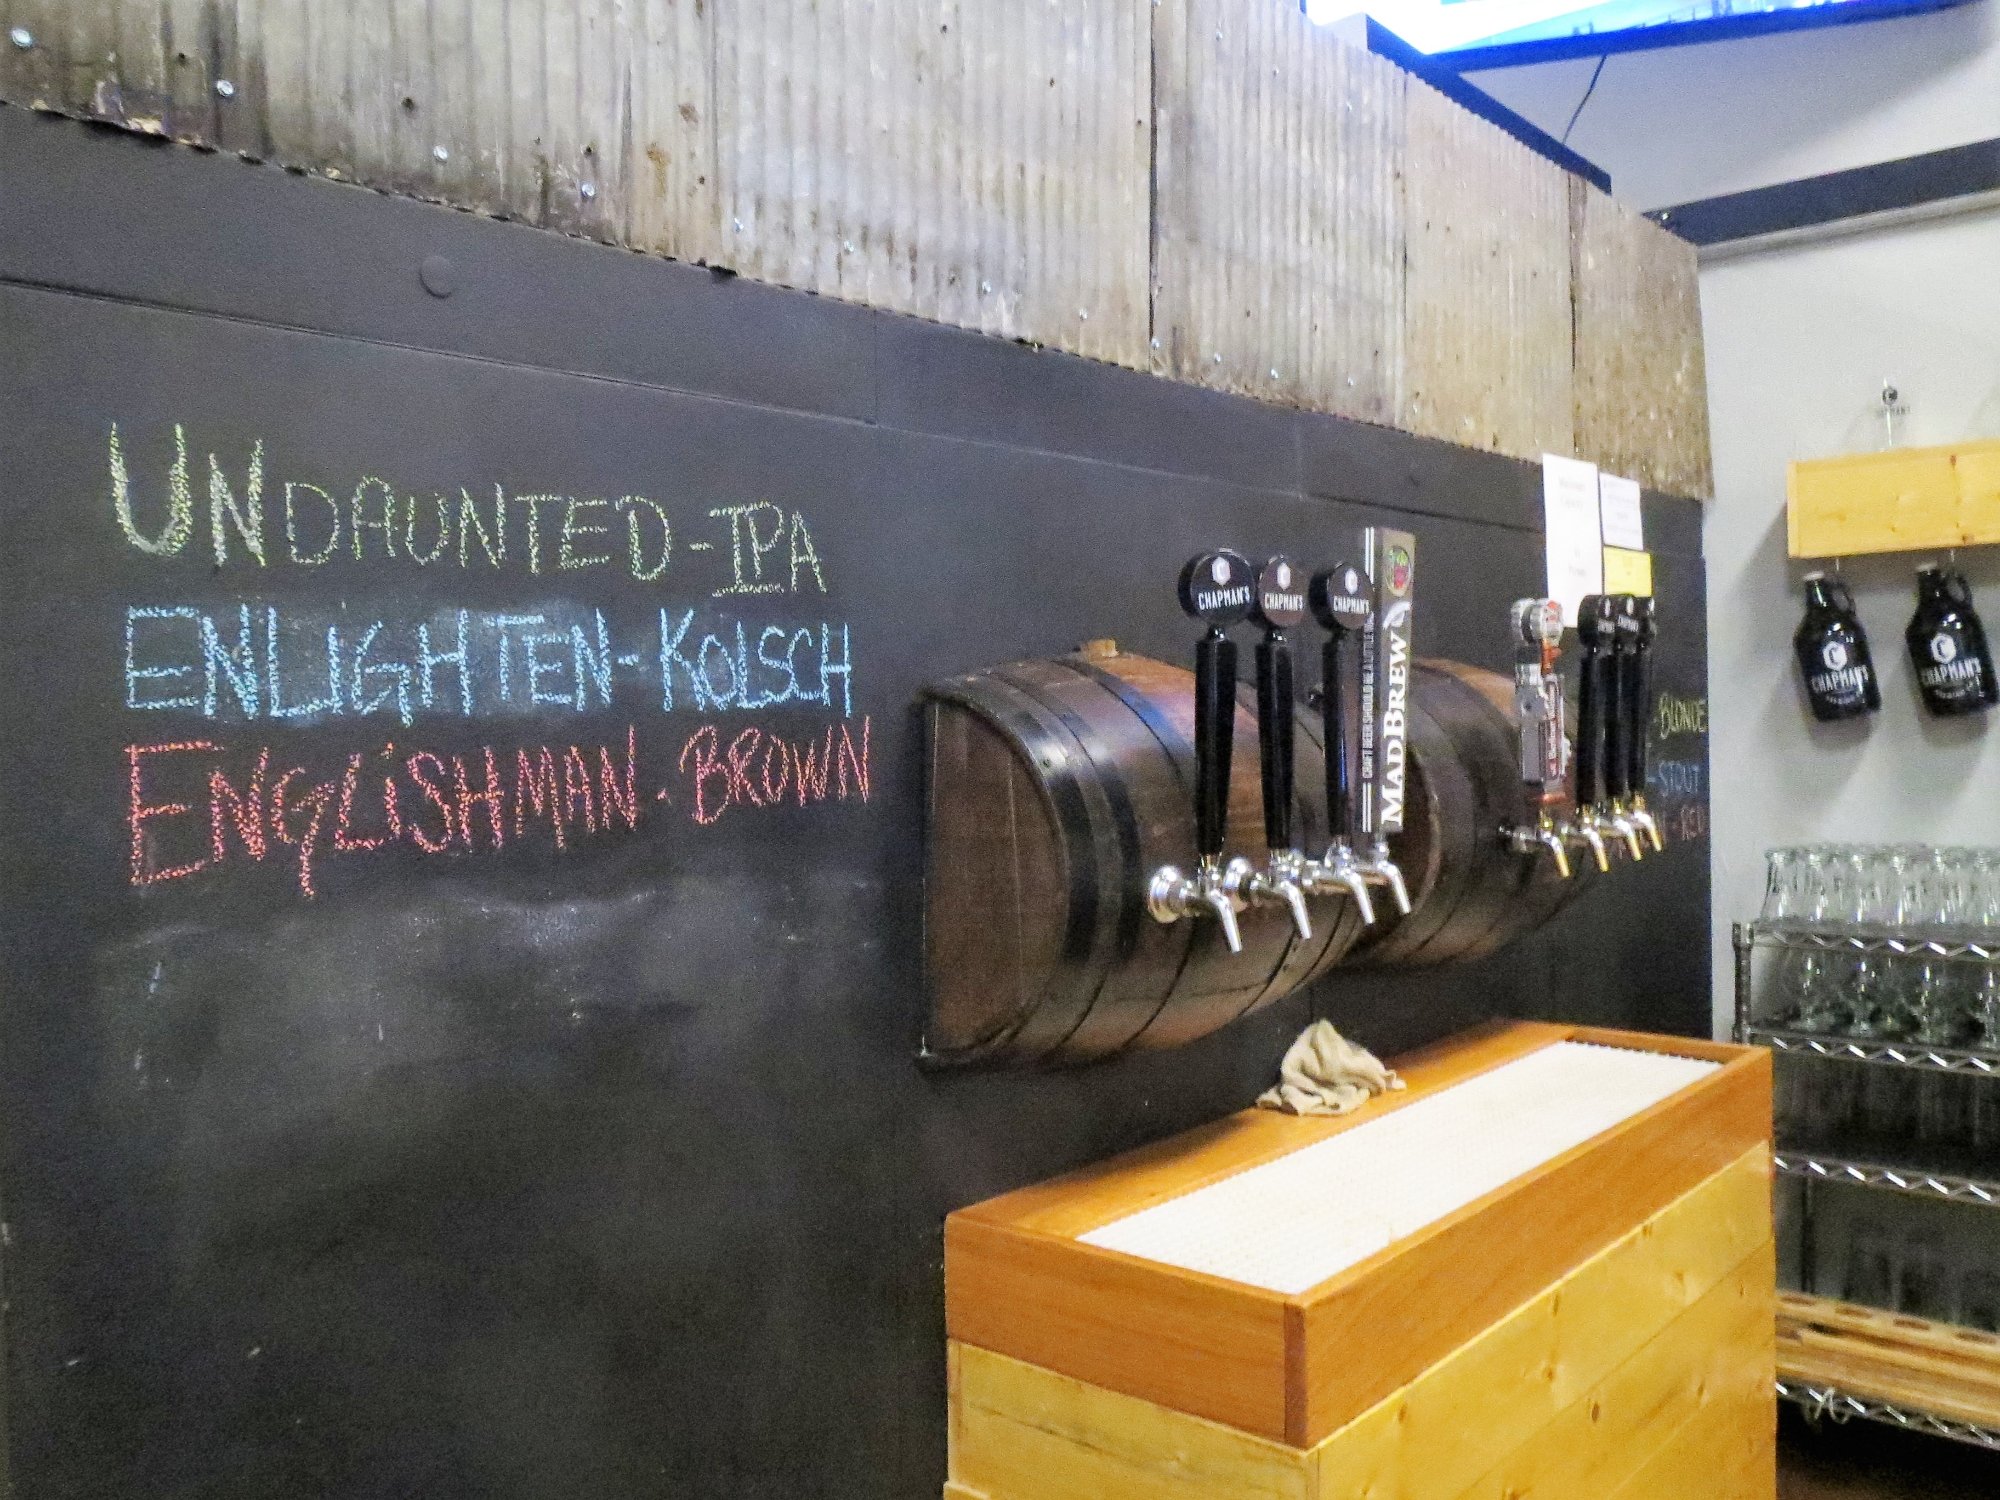 UNDAUNTED - IPA
ENLIGHTEN - KOLSCH
ENGLISHMAN - BROWN
C
CHAPMAN'S
CHAPMAN'S
CHAPMAN'S
MADBREW
CHAPMAN'S
CHAPMAN'S
- BLONDE
- STOUT
- RED
C
CHAPMAN'S
C
CHAPMAN'S